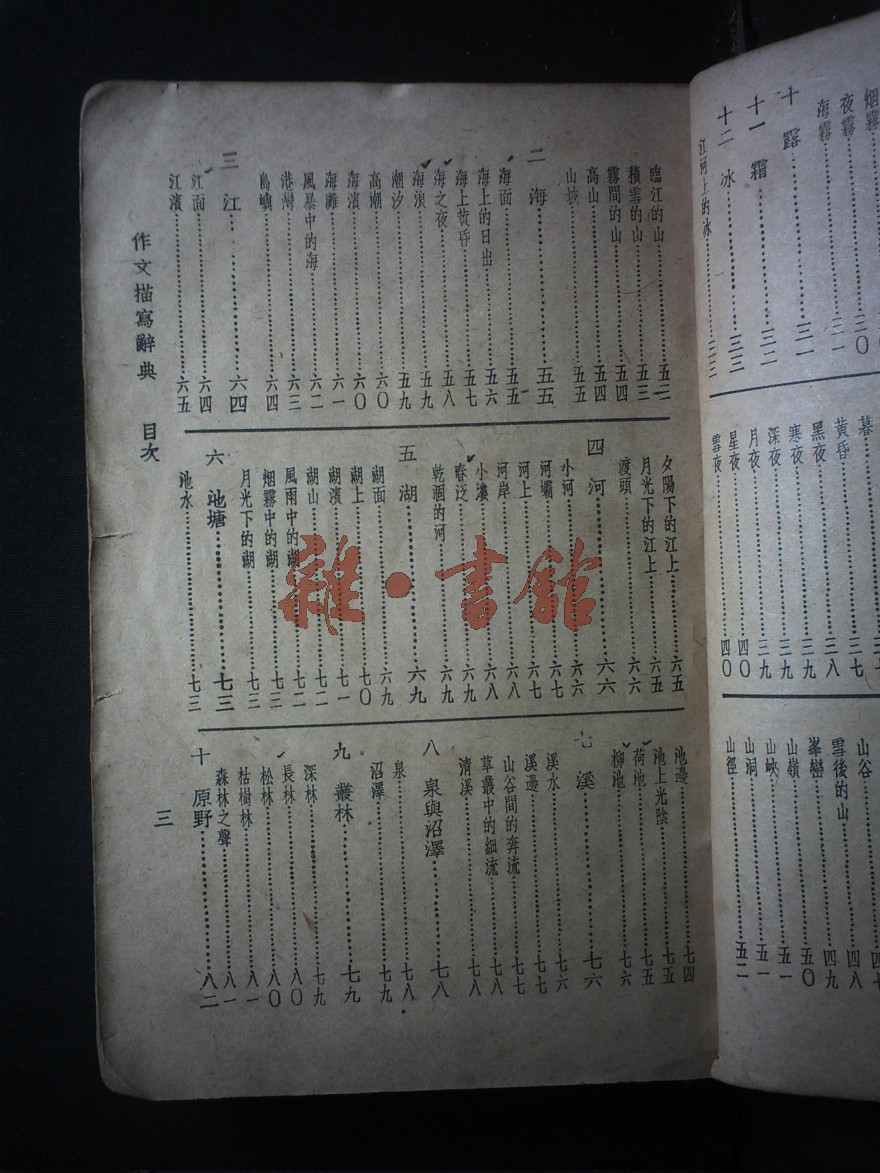 烟霧
夜霧 三〇
海霧 三一
十 露 三一
十一 霜 三二
十二 冰 三三
江河上的冰 三三
暮
黃昏 三七
黑夜 三八
寒夜 三九
深夜 三九
月夜 三九
星夜 四〇
雪夜 四〇
山谷 四七
雪後的山 四八
峯巒 四九
山嶺 五〇
山峽 五一
山洞 五一
山徑 五二
臨江的山 五二
積雪的山 五三
霧間的山 五四
高山 五四
山坡 五五
二 海 五五
海面 五五
海上的日出 五六
海上黃昏 五七
海之夜 五八
海浪 五九
潮汐 五九
高潮 六〇
海濱 六〇
海灘 六一
風暴中的海 六二
港灣 六三
島嶼 六四
三 江 六四
江面 六四
江濱 六五
夕陽下的江上 六五
月光下的江上 六五
渡頭 六六
四 河 六六
小河 六六
河壩 六七
河上 六七
河岸 六八
小溇 六八
春泛 六九
乾涸的河 六九
五 湖 六九
湖面 六九
湖上 七〇
湖濱 七一
湖山 七二
風雨中的湖 七二
烟霧中的湖 七三
月光下的湖 七三
六 池塘 七三
池水 七三
池邊 七四
池上光陰 七五
荷池 七五
柳池 七六
七 溪 七六
溪水 七六
溪邊 七七
山谷間的奔流 七七
草叢中的細流 七八
清溪 七八
八 泉與沼澤 七八
泉 七八
沼澤 七九
九 叢林 七九
深林 七九
長林 八〇
松林 八〇
枯樹林 八一
森林之聲 八一
十 原野 八二
作文描寫辭典 目次
三
雜·書館